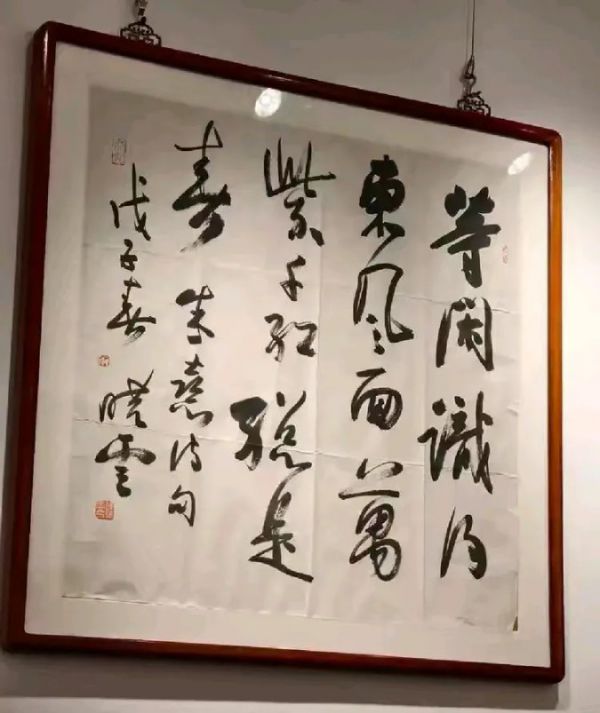 等闲識得
東風面萬
紫千红總是
春 朱熹诗句
戊子春 晓雲